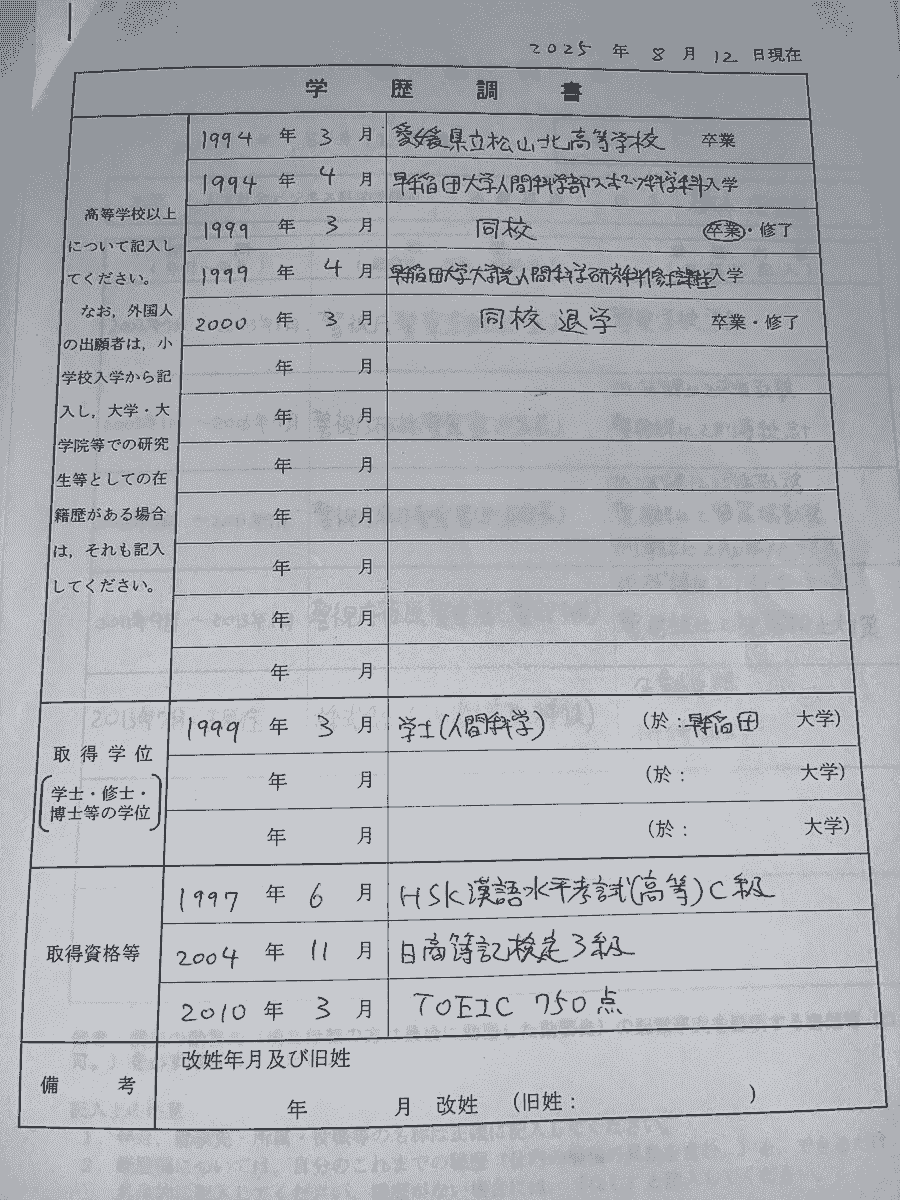 2025 年 8 月 12 日現在
学歴調書
高等学校以上
について記入し
てください。
なお，外国人
の出願者は，小
学校入学から記
入し，大学・大
学院等での研究
生等としての在
籍歴がある場合
は，それも記入
してください。
1994 年 3 月 愛媛県立松山北高等学校 卒業
1994 年 4 月 早稲田大学人間科学部スポーツ科学科入学
1999 年 3 月 同校 卒業・修了
1999 年 4 月 早稲田大学大学院人間科学研究科修士課程入学
2000 年 3 月 同校 退学 卒業・修了
年 月
年 月
年 月
年 月
年 月
年 月
年 月
取得学位
学士・修士・
博士等の学位
1999 年 3 月 学士(人間科学) (於：早稲田 大学)
年 月 (於： 大学)
年 月 (於： 大学)
取得資格等
1997 年 6 月 HSK漢語水平考試(高等)C級
2004 年 11 月 日商簿記検定3級
2010 年 3 月 TOEIC 750点
備考
改姓年月及び旧姓
年 月 改姓 (旧姓： )